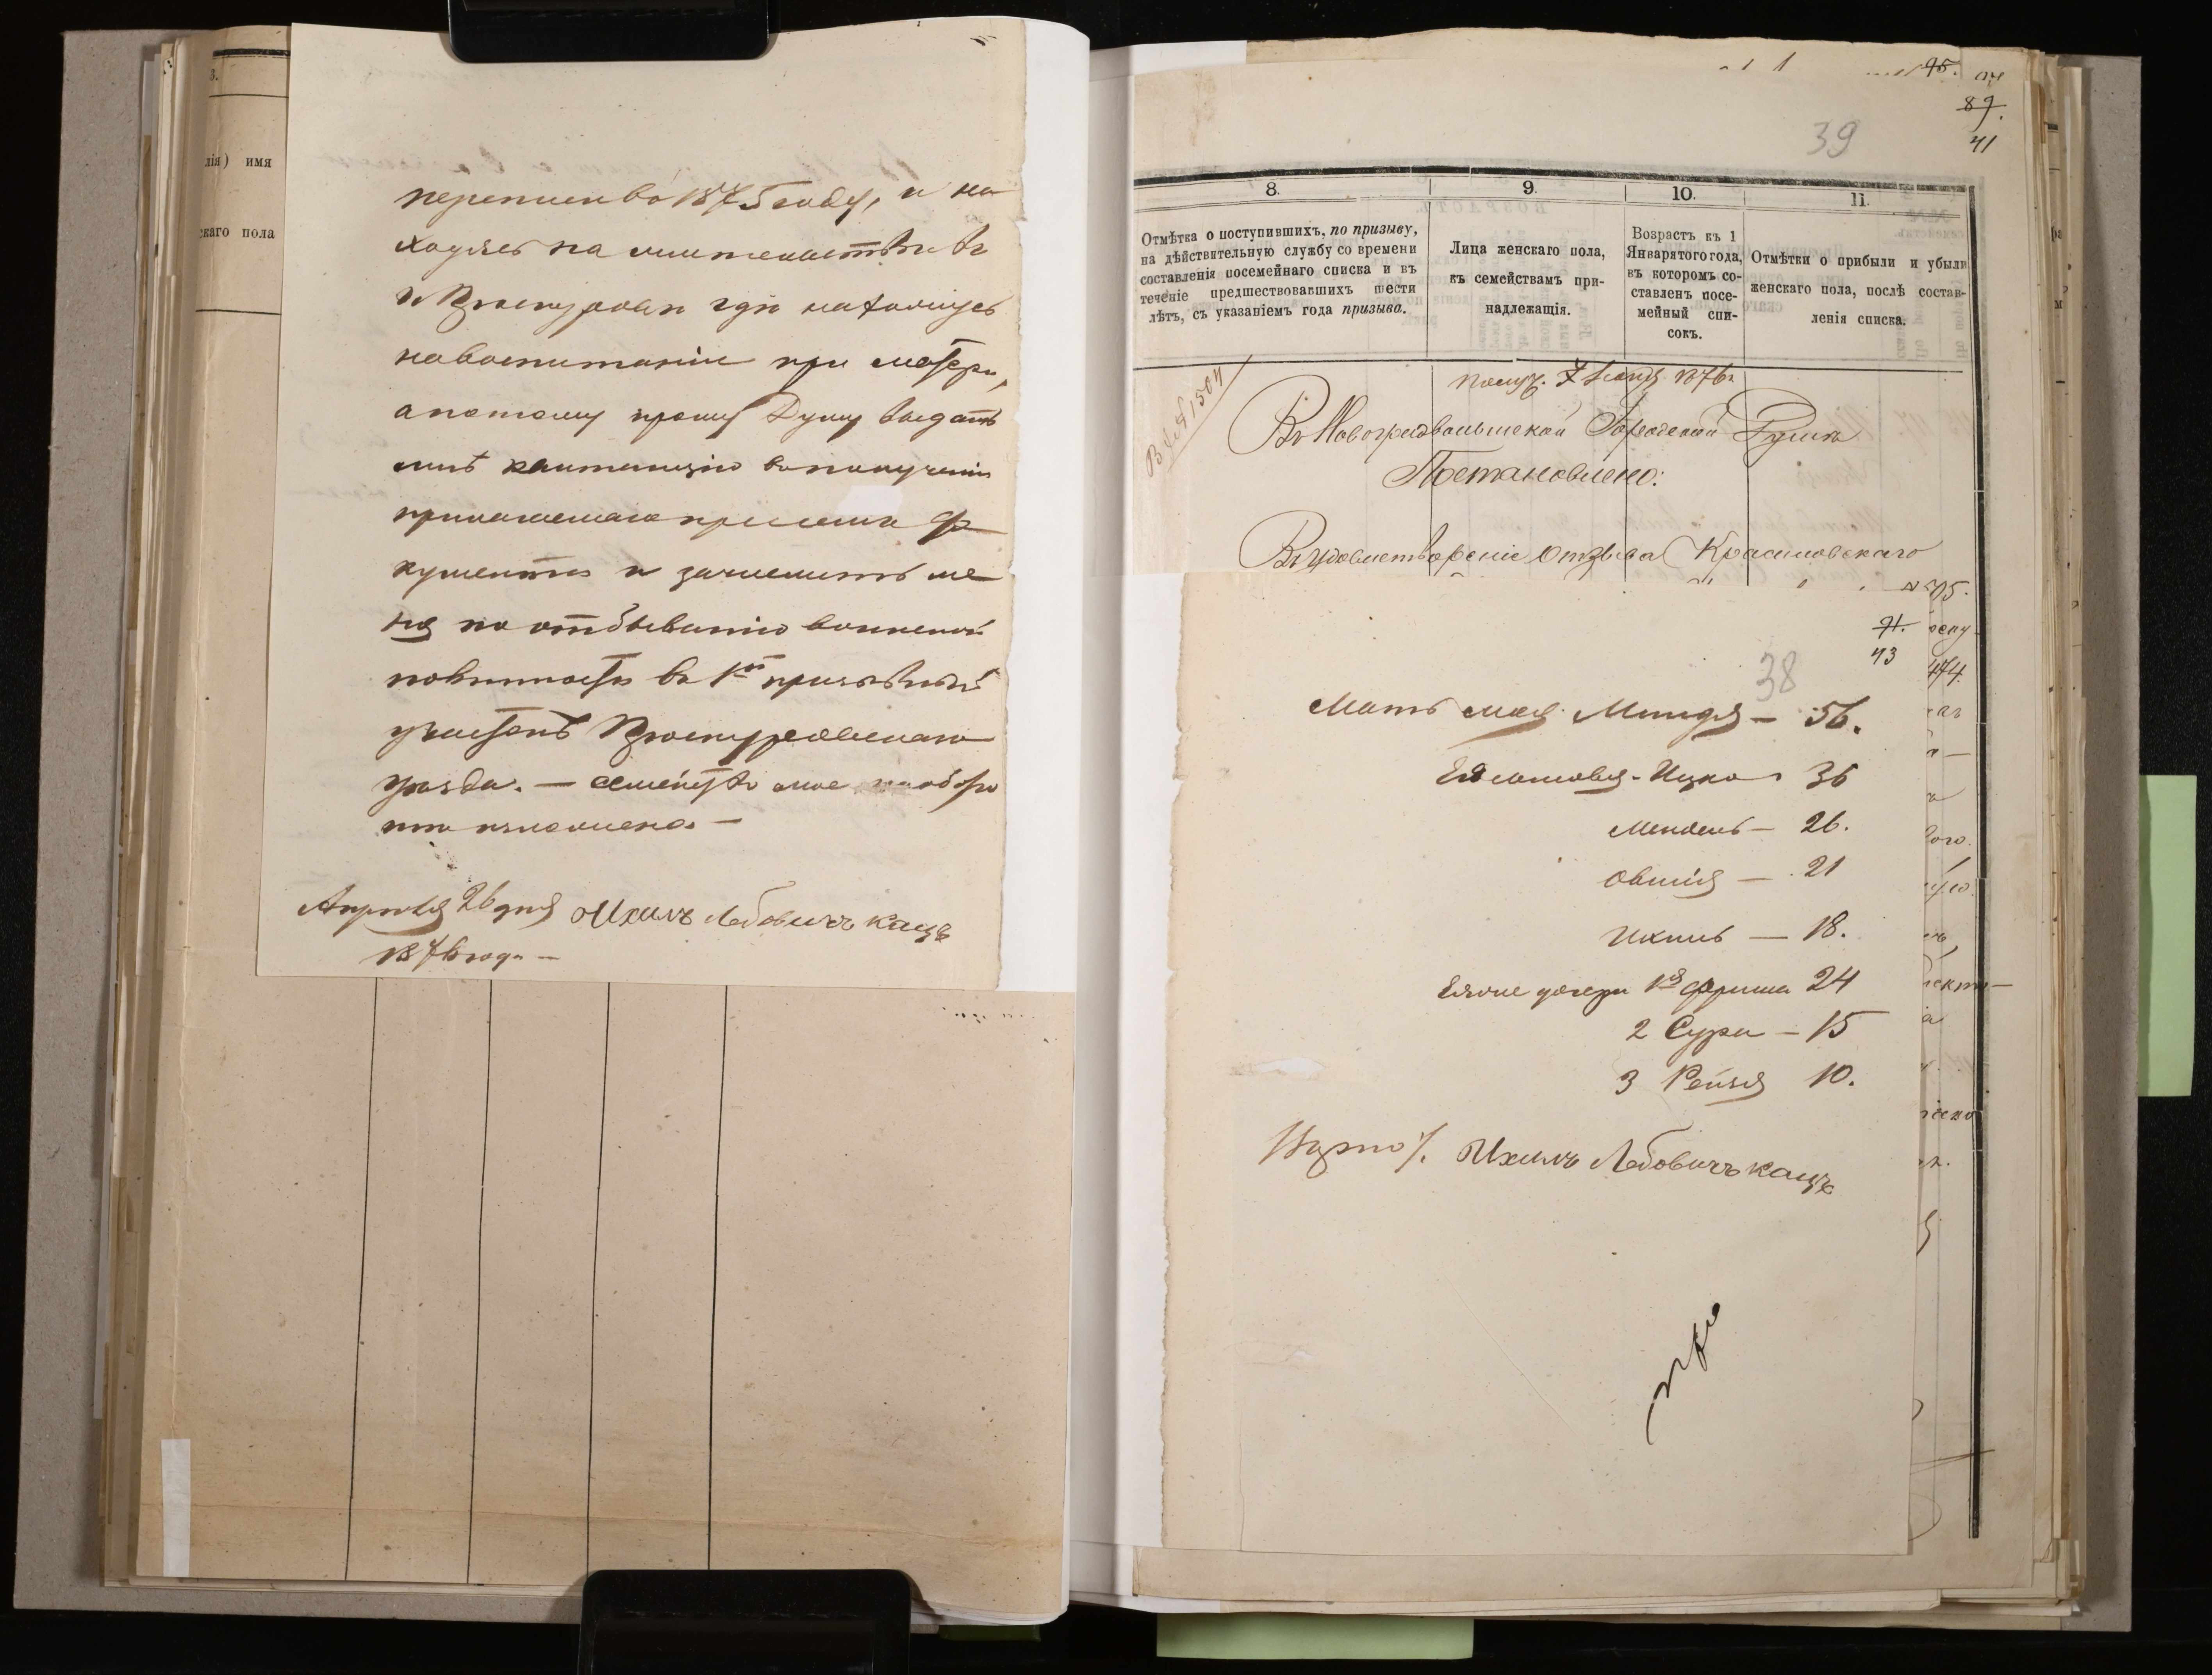 3.
лія) имя
скаго пола
переписи въ 1875 году, и на
ходясь на жительствѣ въ
г. Проскуровѣ гдѣ нахожусь
на воспитаніи при матери,
а потому прошу Думу выдать
мнѣ квитанцію въ полученіи
прилагаемаго при семъ до
кумента и зачислить ме
ня по отбыванію воинской
повинности въ 1й призывный
участокъ Проскуровскаго
уѣзда. — Семейство мое на оборо
тѣ изложено. —
Апрѣля 26 дня Ихилъ Лебовичъ Кацъ
1876 года —
95.
87.
41
39
8. 9. 10. 11.
Отмѣтка о поступившихъ, по призыву,
на дѣйствительную службу со времени
составленія посемейнаго списка и въ
теченіе предшествовавшихъ шести
лѣтъ, съ указаніемъ года призыва.
Лица женскаго пола,
къ семействамъ при-
надлежащія.
Возрастъ къ 1
Января того года,
въ которомъ со-
ставленъ посе-
мейный спи-
сокъ.
Отмѣтки о прибыли и убыли
женскаго пола, послѣ состав-
ленія списка.
1504
Въ Новоградволынской Городской Думѣ
Постановлено:
Въ удовлетвореніе отзыва Красиловскаго
91.
43
38
Мать моя Миндя — 56.
Ея сыновья - Ицко 36
Мендель — 26.
Овшія — 21
Ихиль — 18.
Ея же дочери 1я Фрима 24
2 Сура — 15
3 Рейзя 10.
Ихилъ Лебовичъ Кацъ